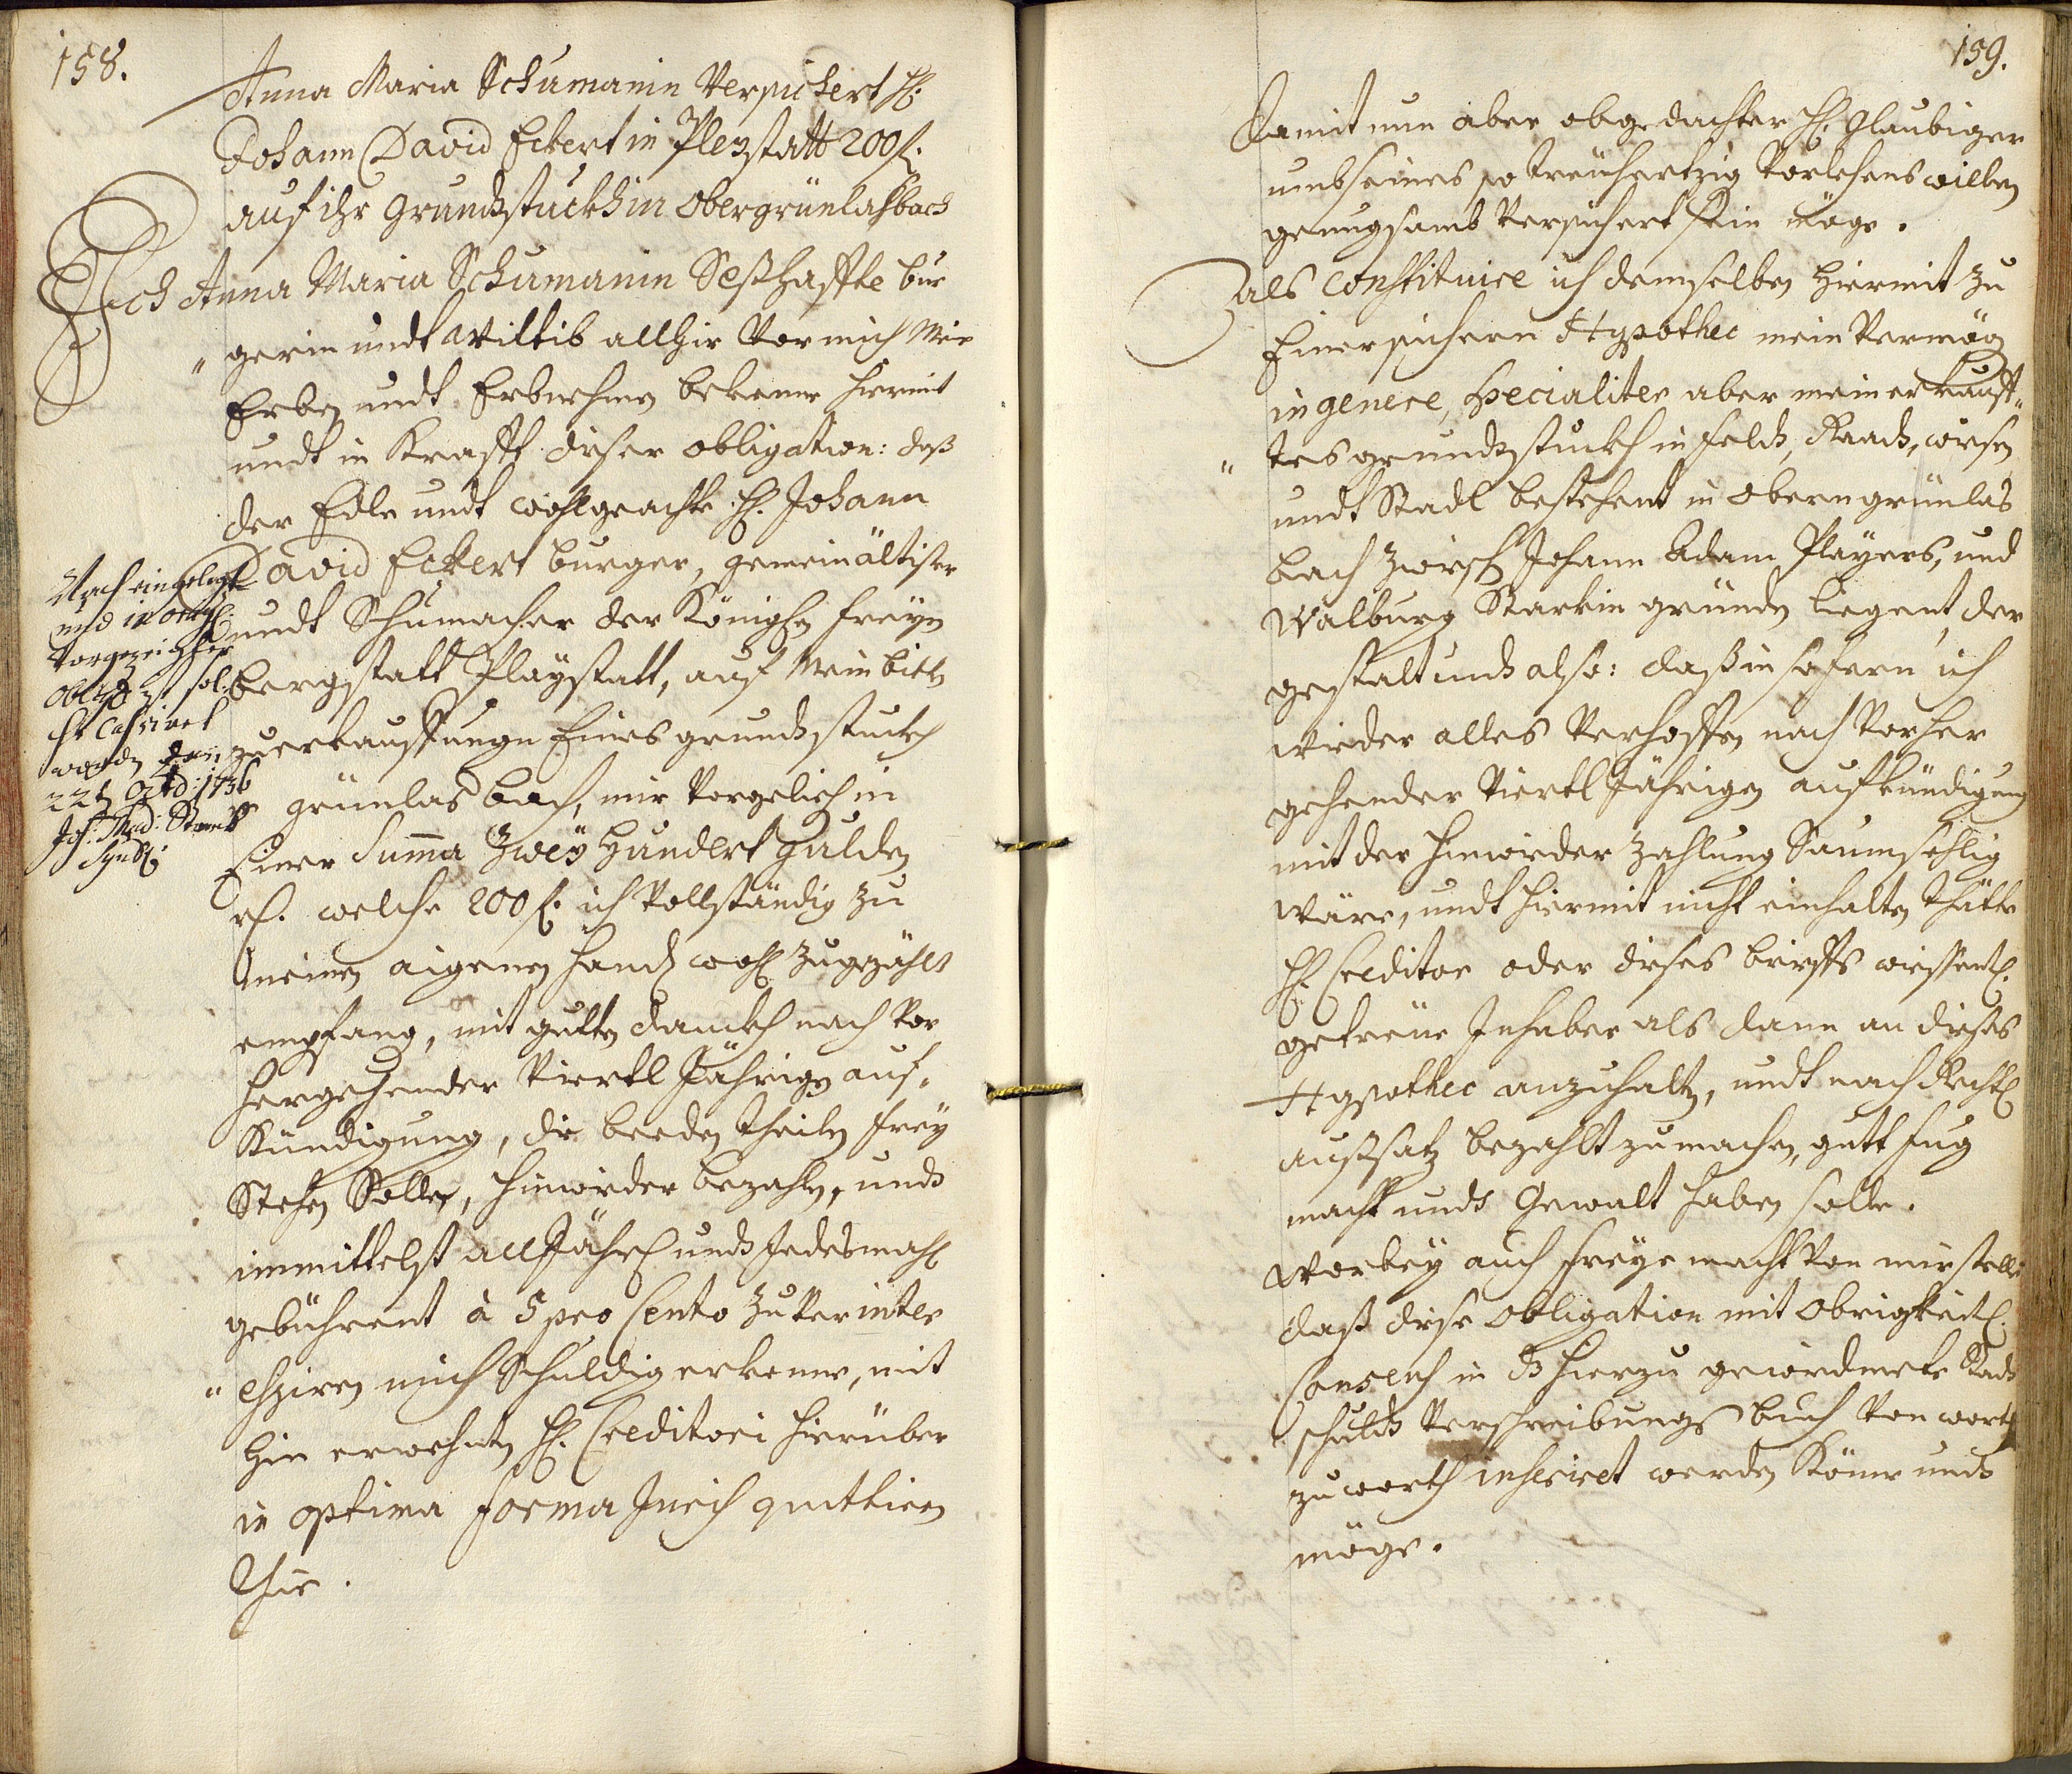 158.
Anna Maria Schumanin Versichert H:
Johann David Eckert in Pleystatt 200 f:
auf ihr Grundstuckh in Obergrünlasbach
Ich Anna Maria Schumanin Seßhaffte bur
„ gerin undt Wittib allhir vor mich Mein
Erben undt Erbnehmen bekenne hiermit
undt in Krafft dieser obligation: daß
der Edle undt wohlgeachte H: Johann
David Eckert burger, gemeinältister
undt Schumacher der Königlichen freyen
bergstatt Playstatt, auf Mein bitten
zuerkauffung Eines grundstuckh
grünlasbach, mir vorgeliehen in
Einer Summa Zwey Hundert Gulden
rh. welche 200 f: ich Vollständig zu
meinen aigenen handen wohl zugezählt
empfang, mit gutten danckh nach vor
hergehender Viertl Jähriger auf„
Kündigung, die beeden theilen frey
Stehen Solle, hinwieder bezahlen, undt
immittelst all Jährlich undt Jedesmahl
gebührent à 5 pro Cento zu verinter
„ ehsiren mich Schuldig erkenne, mit
hin erwehnten H: Creditori hierüber
in optima forma
quittiren
thue.
Nach eingelegter
und in
vorgezeigter
Obligation
ist Cassiret
worden den
22t. 1736
Joh: Thad:
Synd:
159.
Damit nun aber obgedachter H: Glaubiger
umb seines so treuhertzig Vorlehens willen
genugsamb Versichert sein möge.
als constituire ich demselben hiermit zu
Einer sichern Hypothec mein Vermögen
in genere, specialiter aber mein erkauff„
„ tes grundstuckh in feldt, Raadt, wiesen
undt Stadl bestehent in Obern grünlas
bach zwischen Johann Adam Players, und
Walburg Starkin gründen liegent, der
gestalt undt also: daß in sofern ich
wieder alles Verhoffen nach Vorher
gehender Viertl Jährigen aufkündigung
mit der hinwieder zahlung Saumsehlig
wäre, undt hiermit nicht einhalten thätte
H: Creditor oder dieses brieffs wissentl:
getreüe Inhaber als dann an dieses
Hypothec anzuhalten, undt nach Rechtl
außsatz bezahlt zumachen, gutt fug
macht undt Gewalt haben solle.
Worbey auch freye macht von mir stelle
daß diese Obligation mit Obrigkeitl:
Consens in das hierzu gewidmete Stadt
schuldt Verschreibungs buch von worth
zu worth inseriret werden Könne undt
möge.